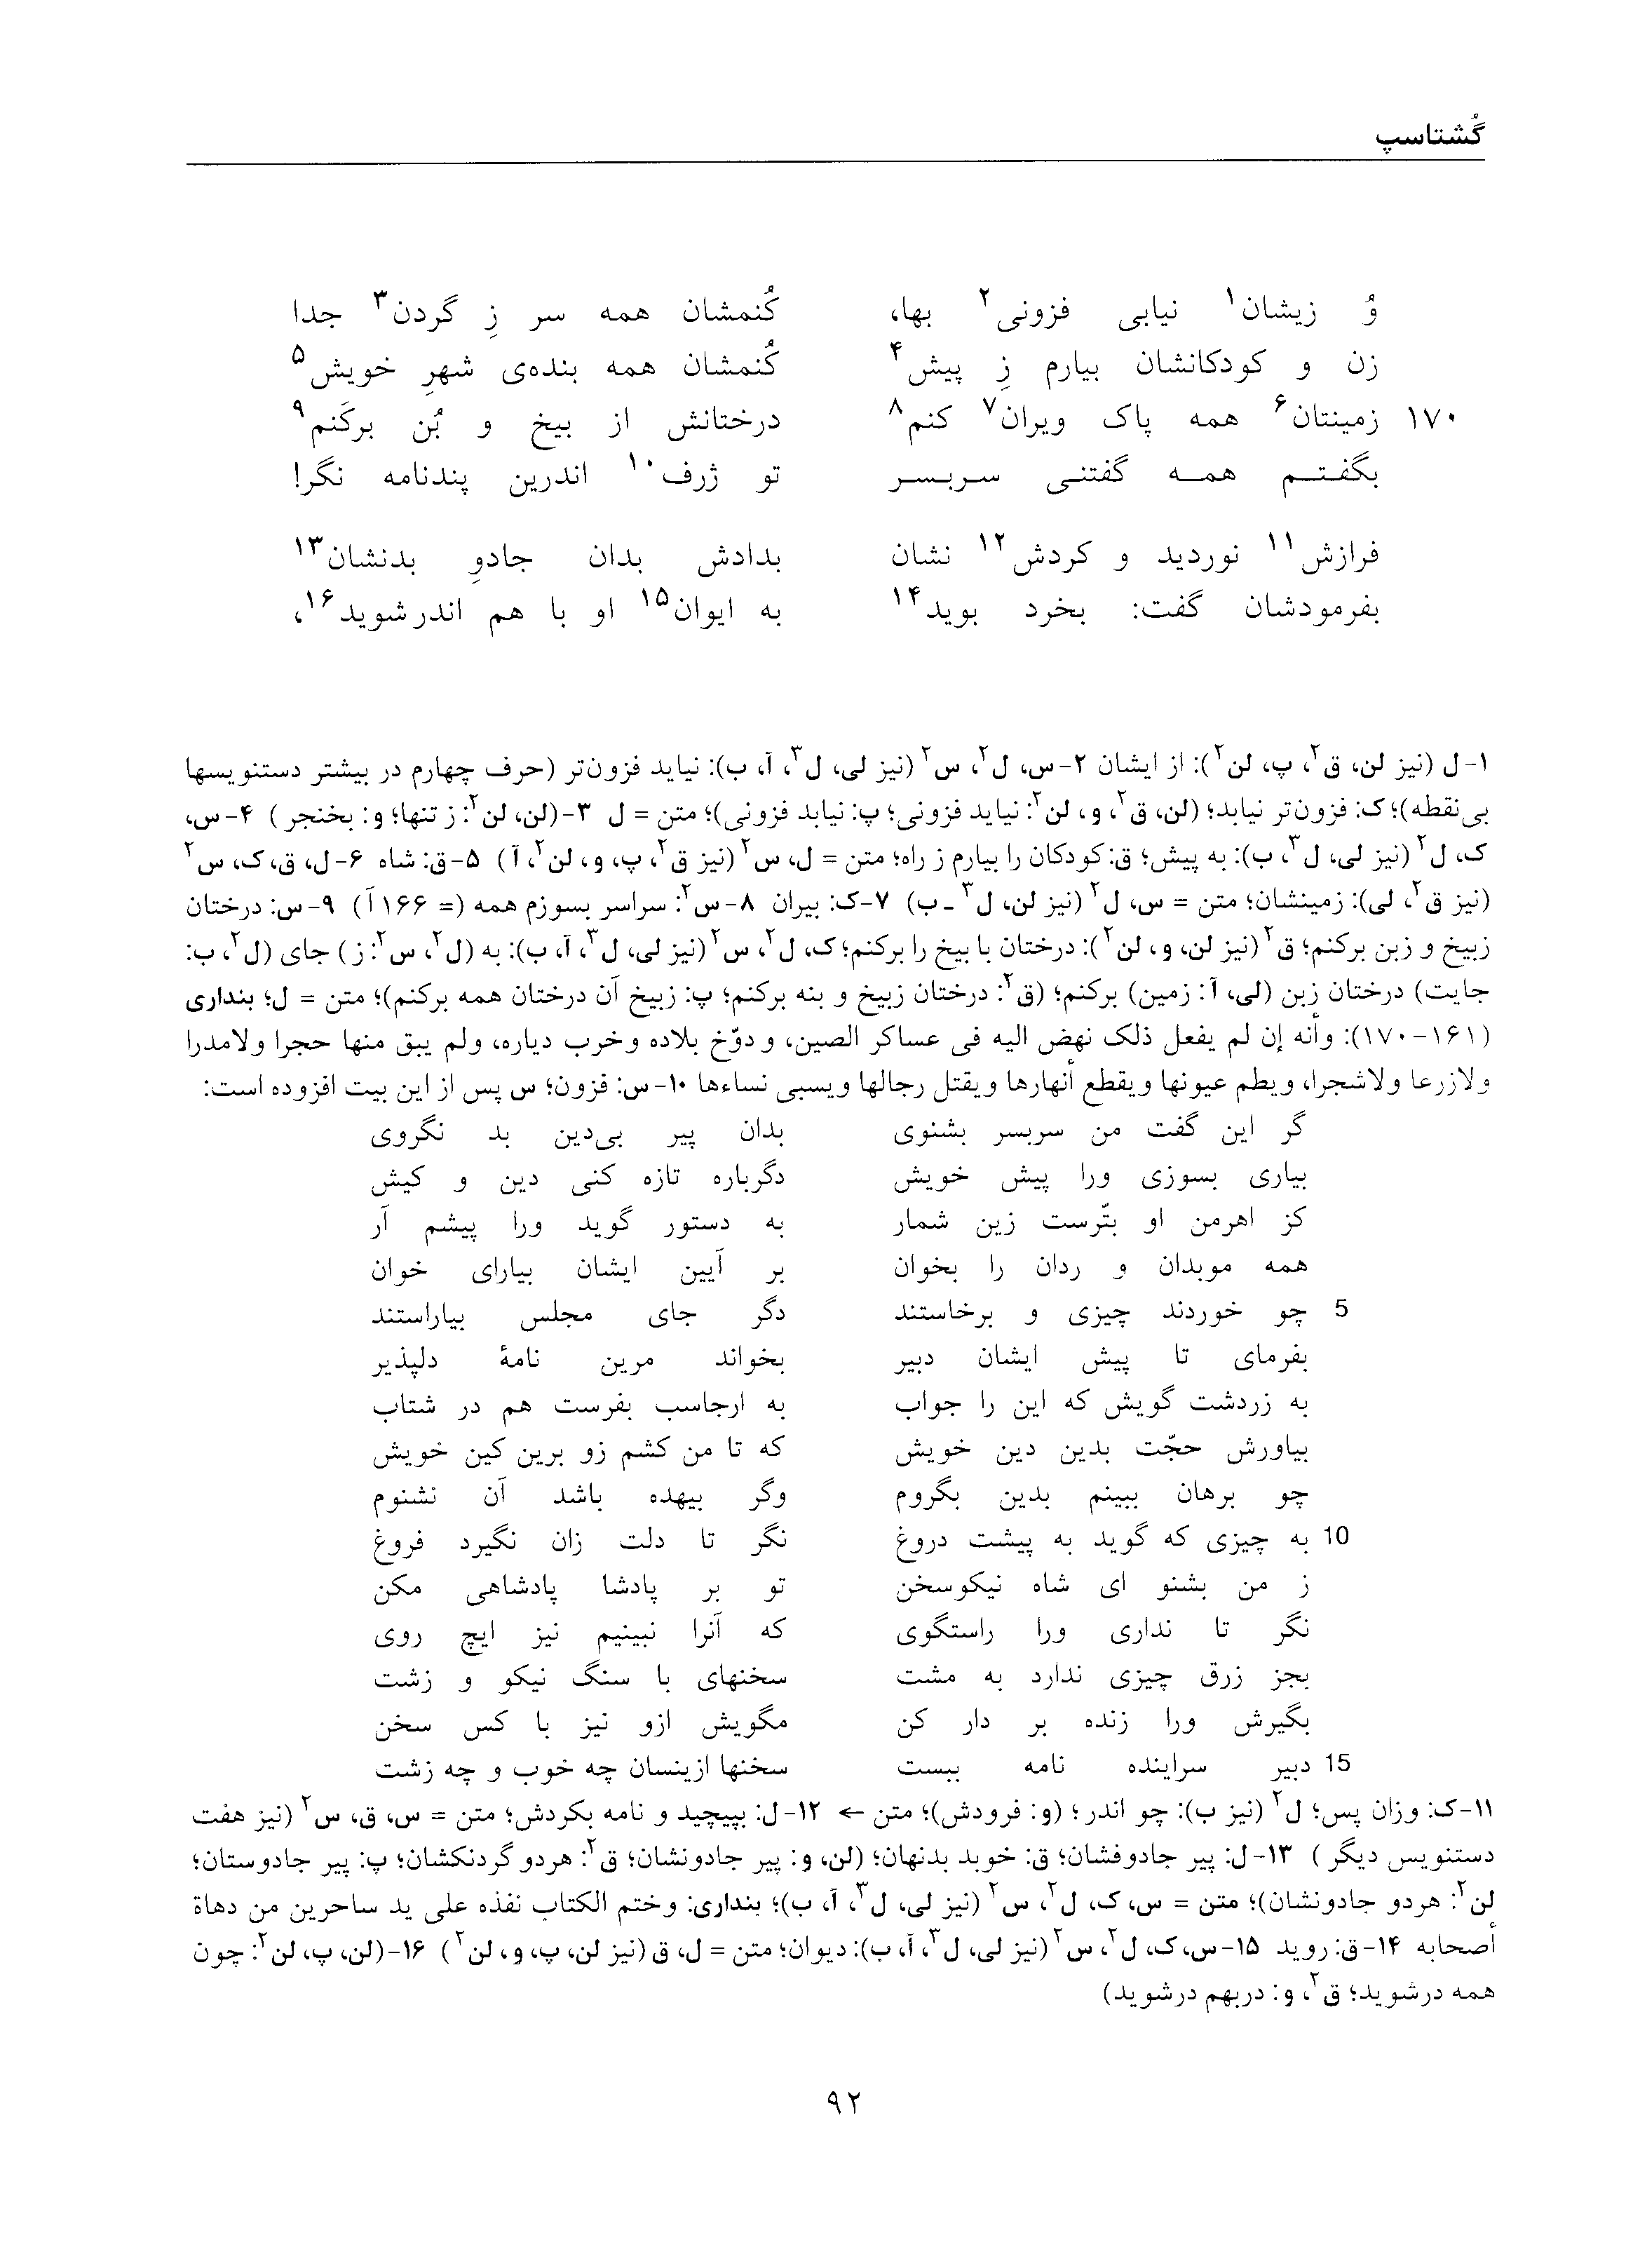 گُشتاسپ
وُ زیشان۱ نیابی فزونی۲ بها، کُنمشان همه سر زِ گردن۳ جدا
زن و کودکانشان بیارم زِ پیش۴ کُنمشان همه بنده‌ی شهرِ خویش۵
۱۷۰ زمینتان۶ همه پاک ویران۷ کنم۸ درختانش از بیخ و بُن برکَنم۹
بگفتم همه گفتنی سربسر تو ژرف۱۰ اندرین پندنامه نگر!
فرازش۱۱ نوردید و کردش۱۲ نشان بدادش بدان جادوِ بدنشان۱۳
بفرمودشان گفت: بخرد بوید۱۴ به ایوان۱۵ او با هم اندرشوید۱۶،
۱-ل (نیز لن، ق۲، پ، لن۲): از ایشان ۲-س، ل۲، س۲ (نیز لی، ل۳، آ، ب): نیاید فزون‌تر (حرف چهارم در بیشتر دستنویسها
بی‌نقطه)؛ ک: فزون‌تر نیابد؛ (لن، ق۲، و، لن۲: نیاید فزونی؛ پ: نیابد فزونی)؛ متن = ل ۳-(لن، لن۲: ز تنها؛ و: بخنجر) ۴-س،
ک، ل۲ (نیز لی، ل۳، ب): به پیش؛ ق: کودکان را بیارم ز راه؛ متن = ل، س۲ (نیز ق۲، پ، و، لن۲، آ) ۵-ق: شاه ۶-ل، ق، ک، س۲
(نیز ق۲، لی): زمینشان؛ متن = س، ل۲ (نیز لن، ل۳ ـ ب) ۷-ک: بیران ۸-س۲: سراسر بسوزم همه (= ۱۶۶ آ) ۹-س: درختان
زبیخ و زبن برکنم؛ ق۲ (نیز لن، و، لن۲): درختان با بیخ را برکنم؛ ک، ل۲، س۲ (نیز لی، ل۳، آ، ب): به (ل۲، س۲: ز) جای (ل۲، ب:
جایت) درختان زبن (لی، آ: زمین) برکنم؛ (ق۲: درختان زبیخ و بنه برکنم؛ پ: زبیخ آن درختان همه برکنم)؛ متن = ل؛ بنداری
(۱۶۱-۱۷۰): وأنه إن لم یفعل ذلک نهض الیه فی عساکر الصین، و دوّخ بلاده وخرب دیاره، ولم یبق منها حجرا ولامدرا
ولازرعا ولاشجرا، ویطم عیونها ویقطع أنهارها ویقتل رجالها ویسبی نساءها ۱۰-س: فزون؛ س پس از این بیت افزوده است:
گر این گفت من سربسر بشنوی بدان پیر بی‌دین بد نگروی
بیاری بسوزی ورا پیش خویش دگرباره تازه کنی دین و کیش
کز اهرمن او بتّرست زین شمار به دستور گوید ورا پیشم آر
همه موبدان و ردان را بخوان بر آیین ایشان بیارای خوان
5 چو خوردند چیزی و برخاستند دگر جای مجلس بیاراستند
بفرمای تا پیش ایشان دبیر بخواند مرین نامهٔ دلپذیر
به زردشت گویش که این را جواب به ارجاسب بفرست هم در شتاب
بیاورش حجّت بدین دین خویش که تا من کشم زو برین کین خویش
چو برهان ببینم بدین بگروم وگر بیهده باشد آن نشنوم
10 به چیزی که گوید به پیشت دروغ نگر تا دلت زان نگیرد فروغ
ز من بشنو ای شاه نیکوسخن تو بر پادشا پادشاهی مکن
نگر تا نداری ورا راستگوی که آنرا نبینیم نیز ایچ روی
بجز زرق چیزی ندارد به مشت سخنهای با سنگ نیکو و زشت
بگیرش ورا زنده بر دار کن مگویش ازو نیز با کس سخن
15 دبیر سراینده نامه ببست سخنها ازینسان چه خوب و چه زشت
۱۱-ک: وزان پس؛ ل۲ (نیز ب): چو اندر؛ (و: فرودش)؛ متن ← ۱۲-ل: بپیچید و نامه بکردش؛ متن = س، ق، س۲ (نیز هفت
دستنویس دیگر) ۱۳-ل: پیر جادوفشان؛ ق: خوبد بدنهان؛ (لن، و: پیر جادونشان؛ ق۲: هردو گردنکشان؛ پ: پیر جادوستان؛
لن۲: هردو جادونشان)؛ متن = س، ک، ل۲، س۲ (نیز لی، ل۳، آ، ب)؛ بنداری: وختم الکتاب نفذه علی ید ساحرین من دهاة
أصحابه ۱۴-ق: روید ۱۵-س، ک، ل۲، س۲ (نیز لی، ل۳، آ، ب): دیوان؛ متن = ل، ق (نیز لن، پ، و، لن۲) ۱۶-(لن، پ، لن۲: چون
همه درشوید؛ ق۲، و: دربهم درشوید)
۹۲